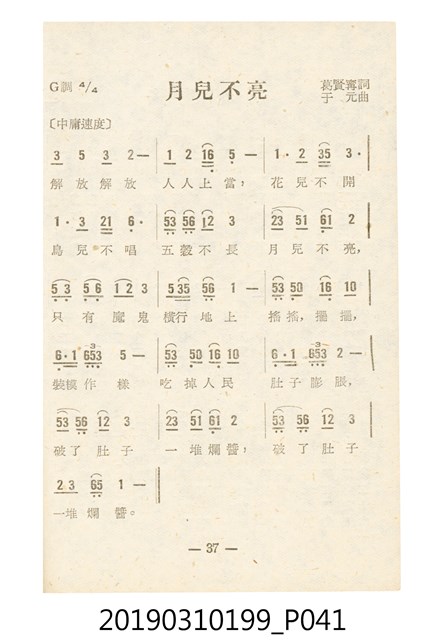 G調 4/4 月兒不亮 葛賢寗詞
于元曲
〔中庸速度〕
3 5 3 2— | 1 2 16 5 — | 1·2 35 3· |
解放解放 人人上當， 花兒不開
1·3 21 6· | 53 56 12 3 | 23 51 61 2 |
鳥兒不唱 五穀不長 月兒不亮，
53 56 12 3 | 535 56 1 — | 53 50 16 10 |
只有魔鬼 橫行地上 搖搖，擺擺，
6·1 653 5 — | 53 50 16 10 | 6·1 653 2 — |
裝模作樣 吃掉人民 肚子膨脹，
53 56 12 3 | 23 51 61 2 | 53 56 12 3 |
破了肚子 一堆爛醬， 破了肚子
23 65 1 — |
一堆爛醬。
— 37 —
20190310199_P041